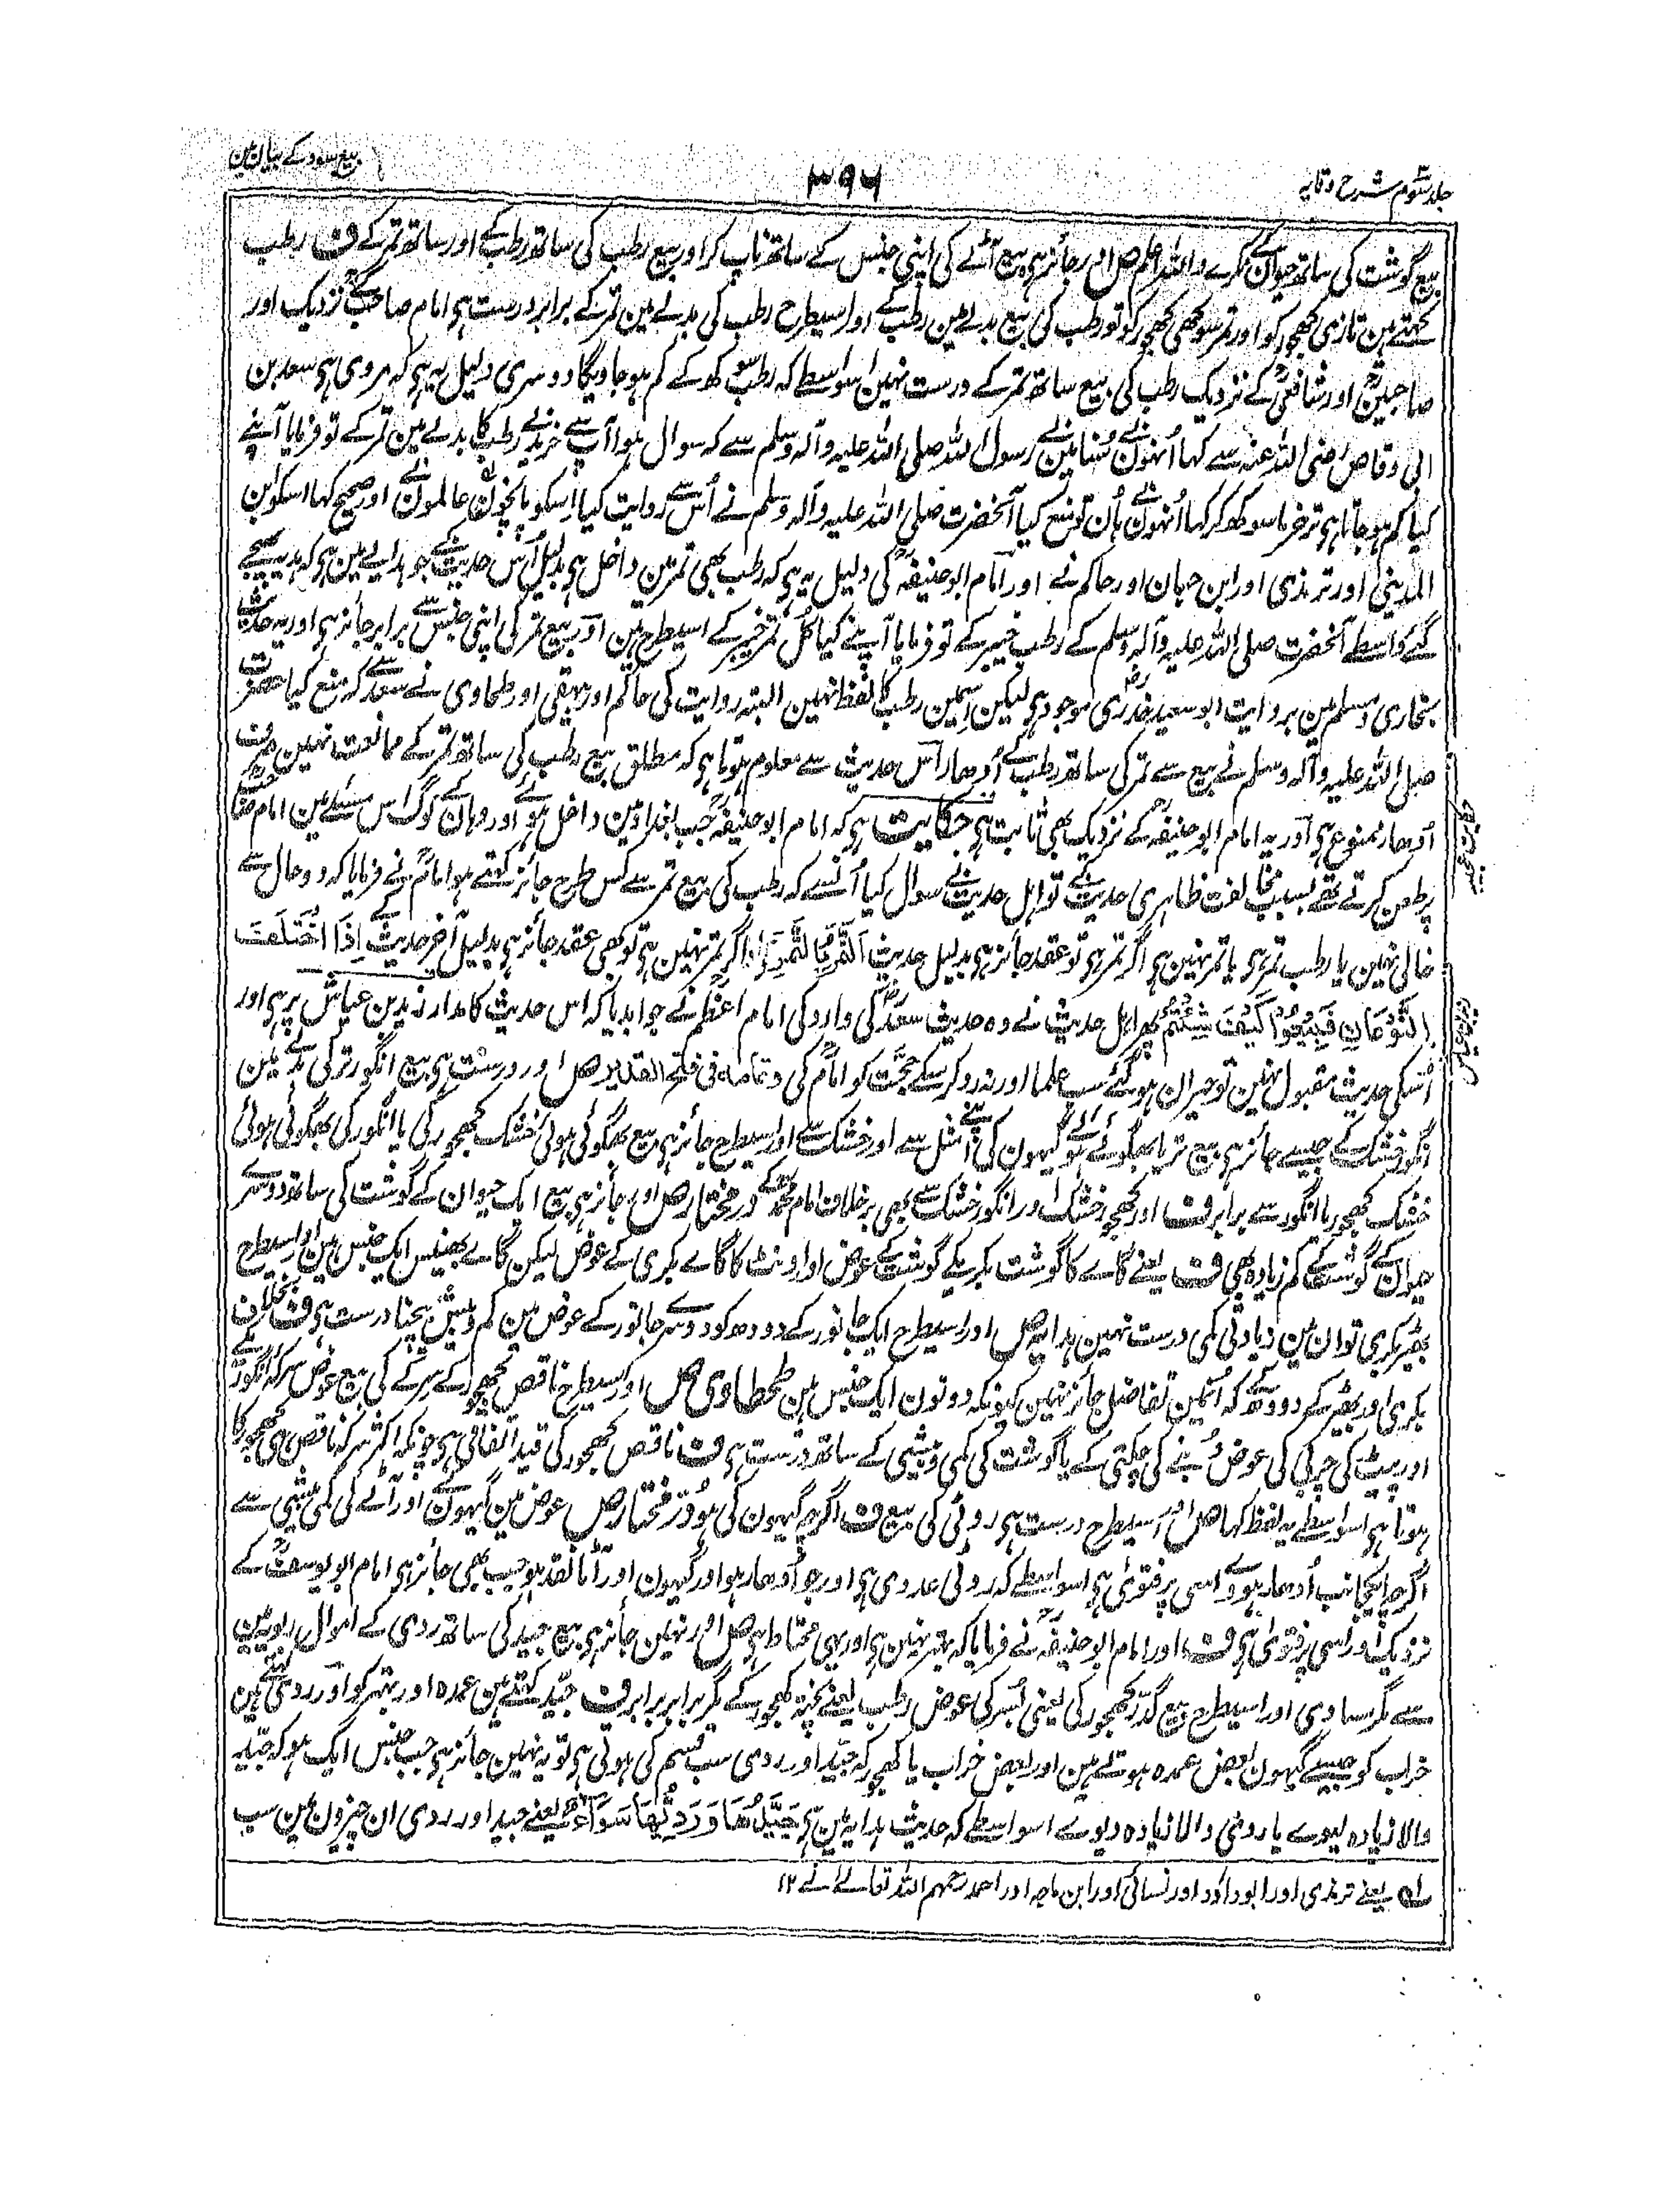 جلد سوم شرح وقایہ
۳۹۶
بیع سود کے بیان مین
بیع گوشت کی ساتھ حیوان کے نکرے واللہ اعلم ص اور جائز ہی بیع آٹے کی اپنی جنس کے ساتھ ناپ کر اور بیع رطب کی ساتھ رطب کے اور ساتھ تمر کے ف رطب
کہتے ہین تازی کھجور کو اور تمر سوکھی کھجور کو تو رطب کی بیع بدلے مین رطب کے اور اسیطرح رطب کی بدلے مین تمر کے برابر درست ہی امام صاحب کے نزدیک اور
صاحبینؒ اور شافعیؒ کے نزدیک رطب کی بیع ساتھ تمر کے درست نہین اسواسطے کہ رطب سوکھ کے کم ہو جاویگا دوسری دلیل یہ ہی کہ مروی ہی سعد بن
ابی وقاص رضی اللہ عنہ سے کہا اُنہون نے سُنا مین نے رسول اللہ صلی اللہ علیہ وآلہ وسلم سے کہ سوال ہوا آپ سے خریدنے رطب کا بدلے مین تمر کے تو فرمایا آپنے
کیا کم ہو جاتا ہی تر خرما سوکھ کر کہا اُنہون نے ہان تو منع کیا آنحضرت صلی اللہ علیہ وآلہ وسلم نے اُس سے روایت کیا اسکو پانچون عالمون نے اور صحیح کہا اسکو ابن
المدینی اور ترمذی اور ابن حبان اور حاکم نے اور امام ابو حنیفہؒ کی دلیل یہ ہی کہ رطب بھی تمر مین داخل ہی بدلیل اُس حدیث کے جو ہدایے مین ہی کہ ہدیہ بھیجے
گئے واسطے آنحضرت صلی اللہ علیہ وآلہ وسلم کے رطب خیبر کے تو فرمایا آپنے کیا کل تمر خیبر کے اسیطرح ہین اور بیع تمر کی اپنی جنس سے برابر جائز ہی اور یہ حدیث
بخاری و مسلم مین بروایت ابو سعید خدریؓ موجود ہی لیکن اسمین رطب کا لفظ نہین البتہ روایت کی حاکم اور بیہقی اور طحاوی نے سعدؓ سے کہ منع کیا حضرت
صلی اللہ علیہ وآلہ وسلم نے بیع سے تمر کی ساتھ رطب کے اُدھار اس حدیث سے معلوم ہوتا ہی کہ مطلق بیع رطب کی ساتھ تمر کے ممانعت نہین صرف
اُدھار ممنوع ہی اور یہ امام ابو حنیفہؒ کے نزدیک بھی ثابت ہی حکایت ہی کہ امام ابو حنیفہؒ جب بغداد مین داخل ہوئے اور وہان کے لوگ اس مسئلے مین امام صاحبؒ
پر طعن کرتے تھے بسبب مخالفت ظاہری حدیث کے تو اہل حدیث نے سوال کیا اُنسے کہ رطب کی بیع تمر سے کس طرح جائز کہتے ہو امامؒ نے فرمایا کہ دو حال سے
خالی نہین یا رطب تمر ہی یا تمر نہین ہی اگر تمر ہی تو عقد جائز ہی بدلیل حدیث اَلتَّمْرُ بِالتَّمْرِ اور اگر تمر نہین ہی تو بھی عقد جائز ہی بدلیل آخر حدیث کے اِذَا اخْتَلَفَتِ
النَّوْعَانِ فَبِیْعُوْا کَیْفَ شِئْتُمْ پھر اہل حدیث نے وہ حدیث سعدؓ کی وارد کی امام اعظمؒ نے جواب دیا کہ اس حدیث کا مدار زید بن عیاش پر ہی اور
اُسکی حدیث مقبول نہین تو حیران ہو گئے سب علما اور نہ رد کر سکے حجت کو امامؒ کی وتمامہ فی فتح القدیر ص اور درست ہی بیع انگور تر کی بدلے مین
انگور خشک کے جیسے جائز ہی بیع تر یا بھگوئے ہوئے گیہون کی اپنے مثل سے اور خشک سے اور اسیطرح جائز ہی بیع بھگوئی ہوئی خشک کھجور کی یا انگور کی بھگوئی ہوئی
خشک کھجور یا انگور سے برابر ف اور کھجور خشک اور انگور خشک سے بھی برخلاف امام محمدؒ کے درمختار ص اور جائز ہی بیع ایک حیوان کے گوشت کی ساتھ دوسرے
حیوان کے گوشت کے کم زیادہ بھی ف یعنے گاے کا گوشت بکری کے گوشت کے عوض اور اونٹ کا گاے بکری کے عوض لیکن گاے بھینس ایک جنس ہین اور اسیطرح
بھیڑ بکری تو ان مین زیادتی کمی درست نہین ہدایہ ص اور اسیطرح ایک جانور کے دودھ کو دوسرے جانور کے عوض مین کم و بیش بیچنا درست ہی ف بخلاف
بکری اور بھیڑ کے دودھ کے کہ اُنمین تفاضل جائز نہین کیونکہ دونون ایک جنس ہین طحطاوی ص اور اسیطرح ناقص کھجور کے سرکے کی بیع عوض سرکہ انگور کے
اور پیٹ کی چربی کی عوض دُنبے کی چکتی کے یا گوشت کی کمی و بیشی کے ساتھ درست ہی ف ناقص کھجور کی قید اتفاقی ہی چونکہ اکثر سرکہ ناقص ہی کھجور کا
ہوتا ہی اسواسطے یہ لفظ کہا ص اور اسیطرح درست ہی روٹی کی بیع ف اگرچہ گیہون کی ہو درمختار ص عوض مین گیہون کے اور آٹے کی کمی بیشی سے
اگرچہ ایکجانب اُدھار ہووے اسی پر فتویٰ ہی اسواسطے کہ روٹی عددی ہی اور جو اُدھار ہو اور گیہون اور آٹا نقد ہو جب بھی جائز ہی امام ابو یوسفؒ کے
نزدیک اور اسی پر فتویٰ ہی ف اور امام ابو حنیفہؒ نے فرمایا کہ بہتر نہین ہی اور یہی محتاط ہی ص اور نہین جائز ہی بیع جید کی ساتھ ردی کے اموال ربویہ مین
سے مگر مساوی اور اسیطرح بیع گدّر کھجور کی یعنی بُسر کی عوض رطب یعنے پختہ کھجور کے مگر برابر برابر ف جیّد کہتے ہین عمدہ اور بہتر کو اور ردی کہتے ہین
خراب کو جیسے گیہون بعض عمدہ ہوتے ہین اور بعض خراب یا کھجور کہ جیّد اور ردی سب قسم کی ہوتی ہی تو یہ نہین جائز ہی جب جنس ایک ہو کہ جیّد
والا زیادہ لیوے یا ردی والا زیادہ دیوے اسواسطے کہ حدیث ہدایہ مین ہی جَیِّدُھَا وَرَدِیُّھَا سَوَاءٌ یعنے جید اور ردی ان چیزون مین سب
لہ یعنے ترمذی اور ابو داؤد اور نسائی اور ابن ماجہ اور احمد رحمہم اللہ تعالےٰ نے ۱۲